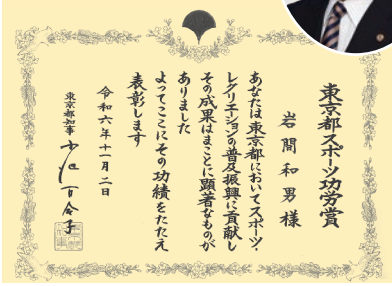 東京都スポーツ功労賞
岩間和男様
あなたは東京都においてスポーツ・
レクリエーションの普及振興に貢献し
その成果はまことに顕著なものが
ありました
よってここにその功績をたたえ
表彰します
令和六年十一月二日
東京都知事 小池百合子